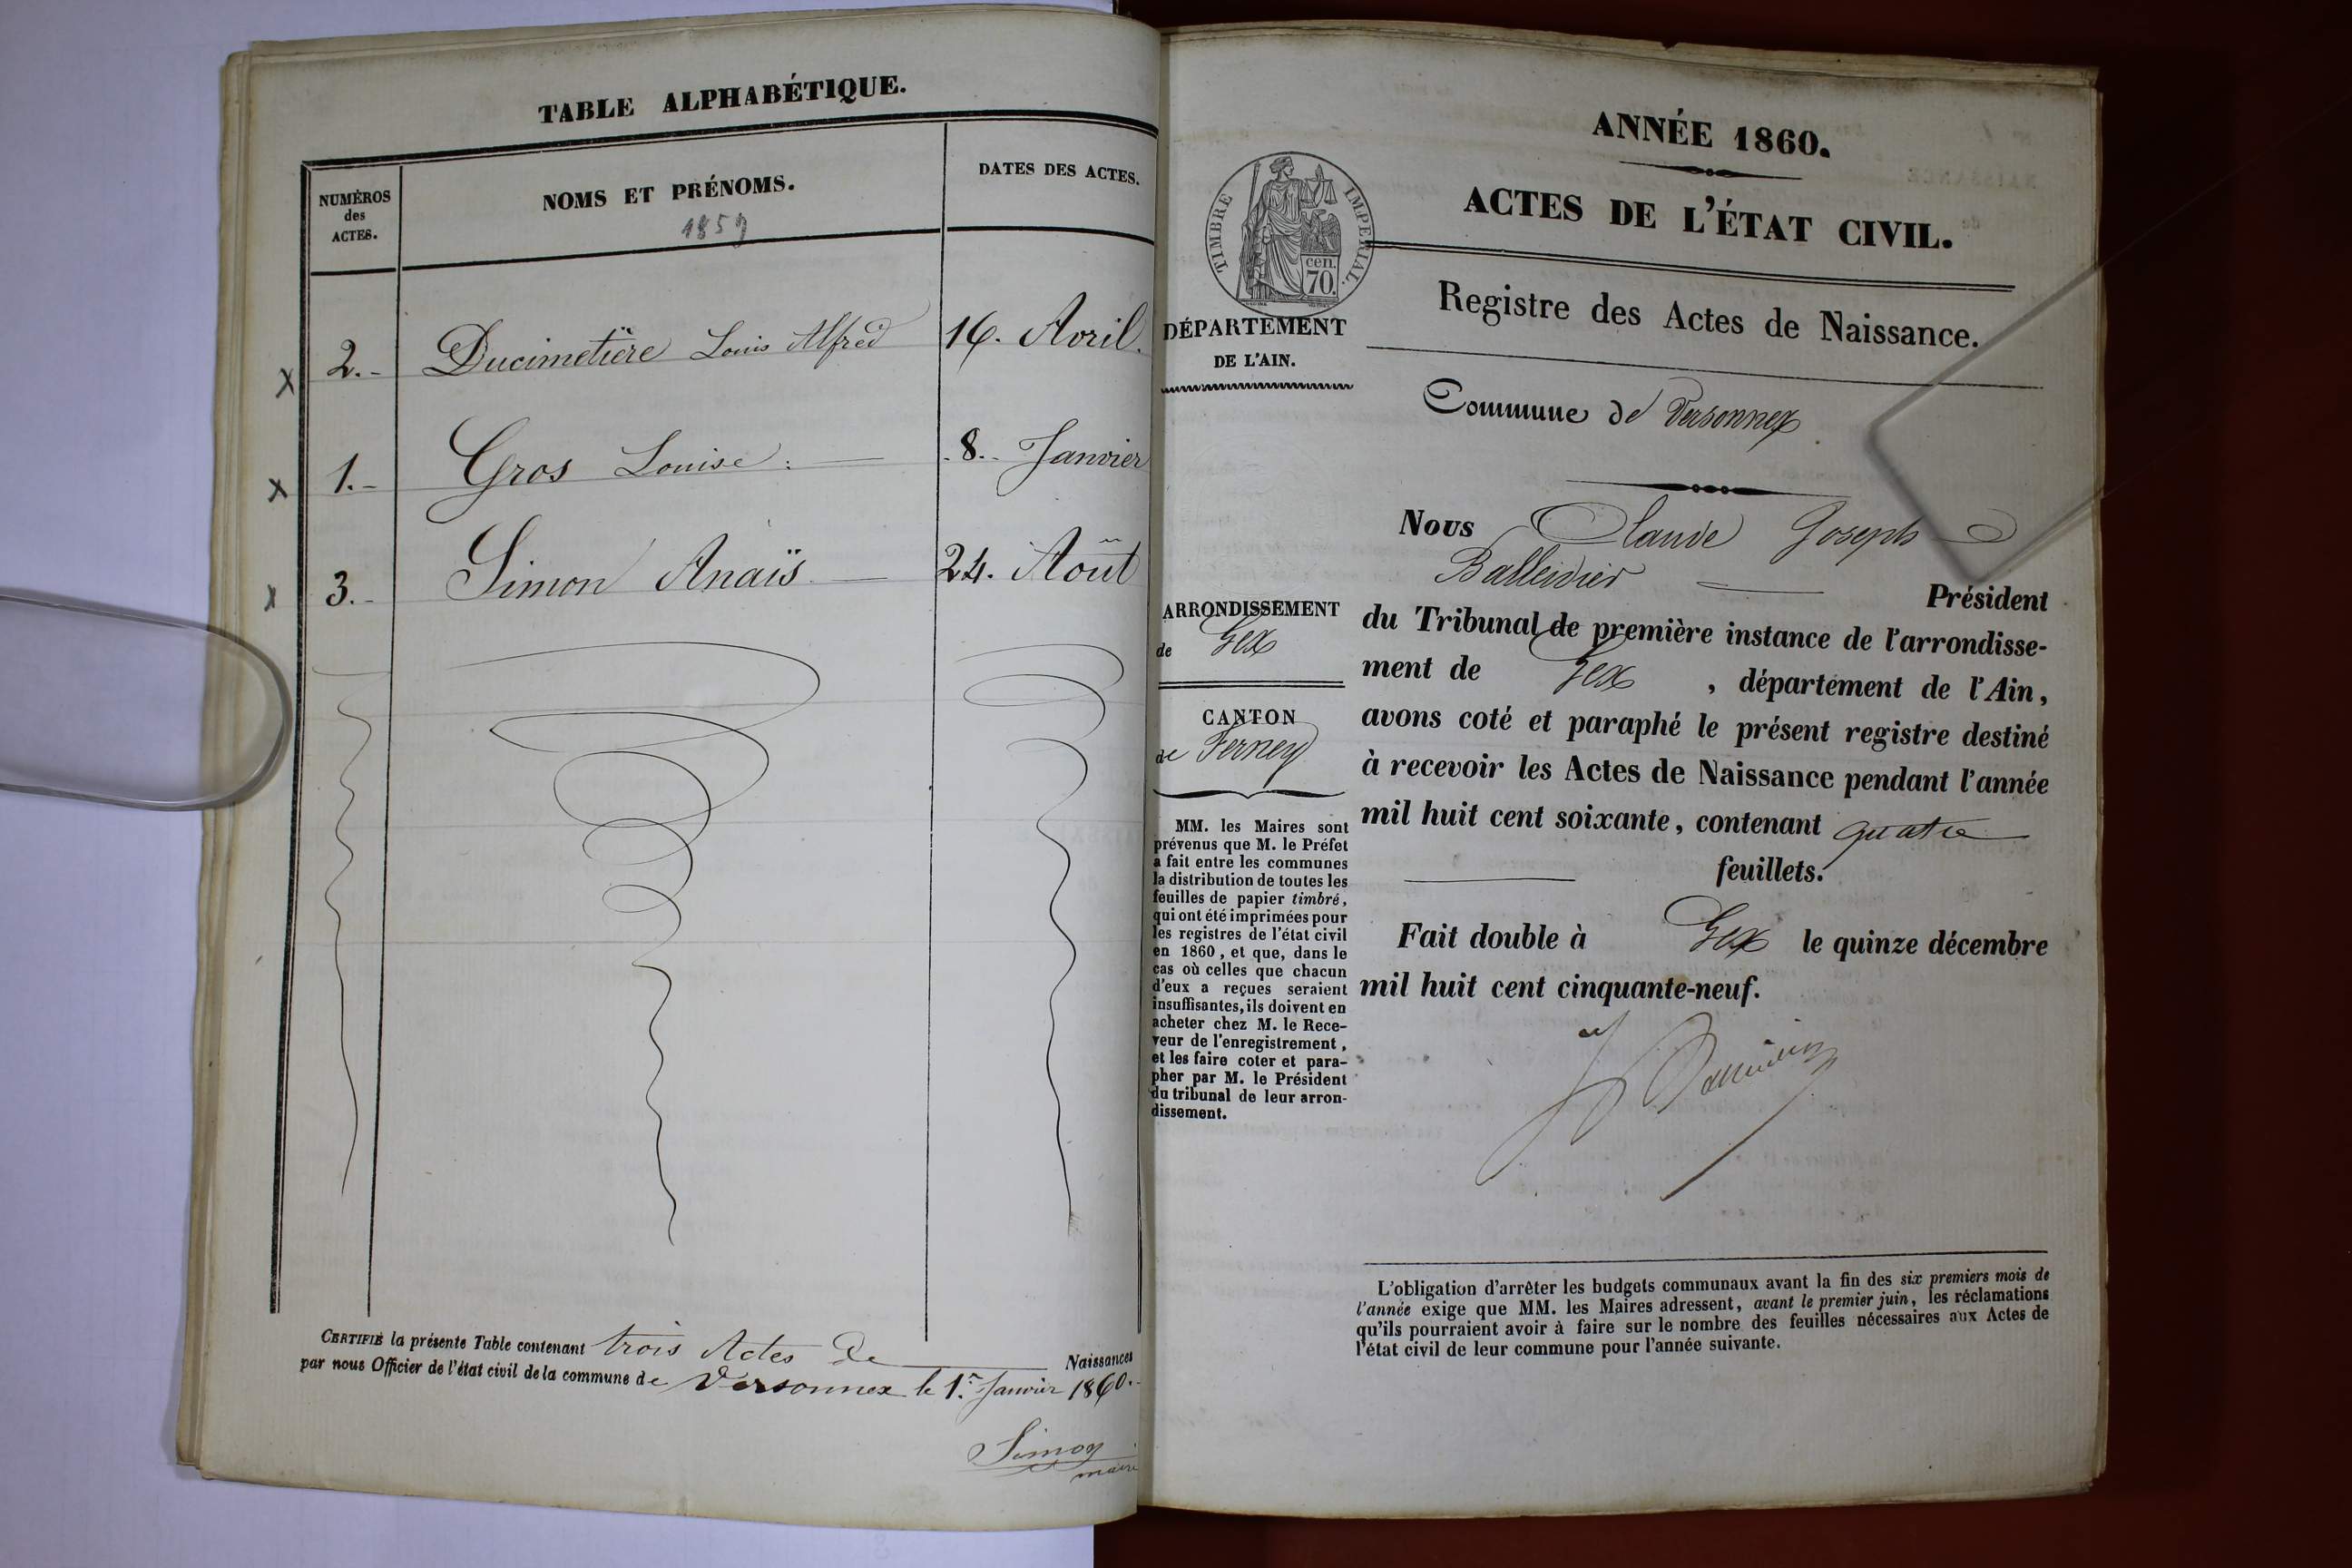 TABLE ALPHABÉTIQUE.
NUMÉROS
des
ACTES.
NOMS ET PRÉNOMS.
1859
DATES DES ACTES.
x 2.- Ducimetière Louis Alfred 16. Avril.
x 1.- Gros Louise : — .8.. Janvier
x 3.- Simon Anaïs — 24. Août
CERTIFIÉ la présente Table contenant trois Actes de Naissances
par nous Officier de l'état civil de la commune de Versonnex le 1.r Janvier 1860.-
Simon
maire
ANNÉE 1860.
ACTES DE L'ÉTAT CIVIL.
TIMBRE IMPERIAL.
cen.
70.
DÉPARTEMENT
DE L'AIN.
Registre des Actes de Naissance.
Commune de Versonnex
ARRONDISSEMENT
de Gex
CANTON
de Ferney
MM. les Maires sont
prévenus que M. le Préfet
a fait entre les communes
la distribution de toutes les
feuilles de papier timbré,
qui ont été imprimées pour
les registres de l'état civil
en 1860, et que, dans le
cas où celles que chacun
d'eux a reçues seraient
insuffisantes, ils doivent en
acheter chez M. le Rece-
veur de l'enregistrement,
et les faire coter et para-
pher par M. le Président
du tribunal de leur arron-
dissement.
Nous Claude Joseph
Balleidier — Président
du Tribunal de première instance de l'arrondisse-
ment de Gex, département de l'Ain,
avons coté et paraphé le présent registre destiné
à recevoir les Actes de Naissance pendant l'année
mil huit cent soixante, contenant quatre
feuillets.
Fait double à Gex le quinze décembre
mil huit cent cinquante-neuf.
L'obligation d'arrêter les budgets communaux avant la fin des six premiers mois de
l'année exige que MM. les Maires adressent, avant le premier juin, les réclamations
qu'ils pourraient avoir à faire sur le nombre des feuilles nécessaires aux Actes de
l'état civil de leur commune pour l'année suivante.